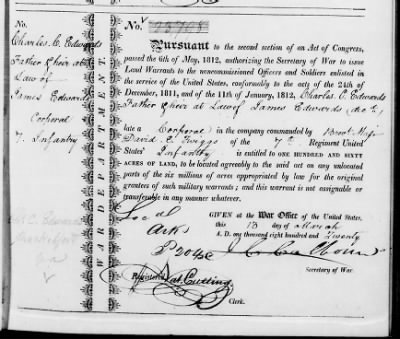 No.
Charles C. Edwards
Father & heir at
Law of
James Edwards
Corporal
7. Infantry
WAR DEPARTMENT.
No. 25708
Pursuant to the second section of an Act of Congress,
passed the 6th of May, 1812, authorizing the Secretary of War to issue
Land Warrants to the noncommissioned Officers and Soldiers enlisted in
the service of the United States, conformably to the acts of the 24th of
December, 1811, and of the 11th of January, 1812, Charles C. Edwards
Father & heir at Law of James Edwards
late a Corporal in the company commanded by Brevt Maj.
David E. Twiggs of the 7th Regiment United
States' Infantry is ENTITLED to ONE HUNDRED AND SIXTY
ACRES OF LAND, to be located agreeably to the said act on any unlocated
parts of the six millions of acres appropriated by law for the original
grantees of such military warrants; and this warrant is not assignable or
transferable in any manner whatever.
C. Edwards
GIVEN at the War Office of the United States,
this 13 day of March
A. D. one thousand eight hundred and Twenty
J C Calhoun
Secretary of War.
Registered
Nat. Cutting
Clerk.